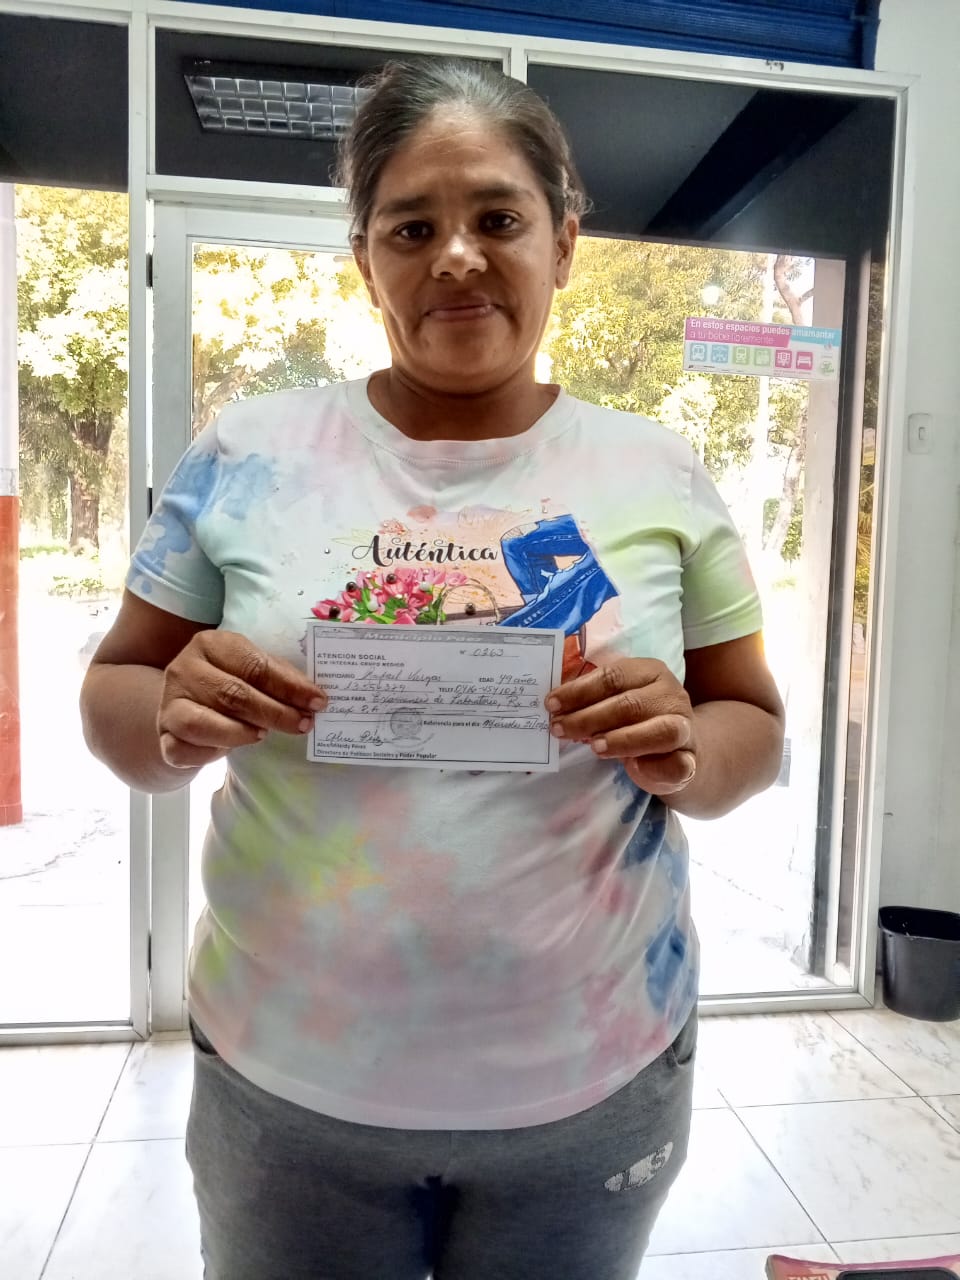 En estos espacios puedes amamantar
a tu bebé libremente
Auténtica
Municipio Páez
ATENCION SOCIAL
Nº 0263
ICM INTEGRAL GRUPO MEDICO
BENEFICIARIO Rafael Vargas EDAD 49 años
CEDULA 13.556.329 TELEF. 0416-4541029
REFERENCIA PARA: Examenes de Laboratorio, Rx de
Torax P.A
Referencia para el día: Miercoles
Alice Pérez
Directora de Políticas Sociales y Poder Popular
LS